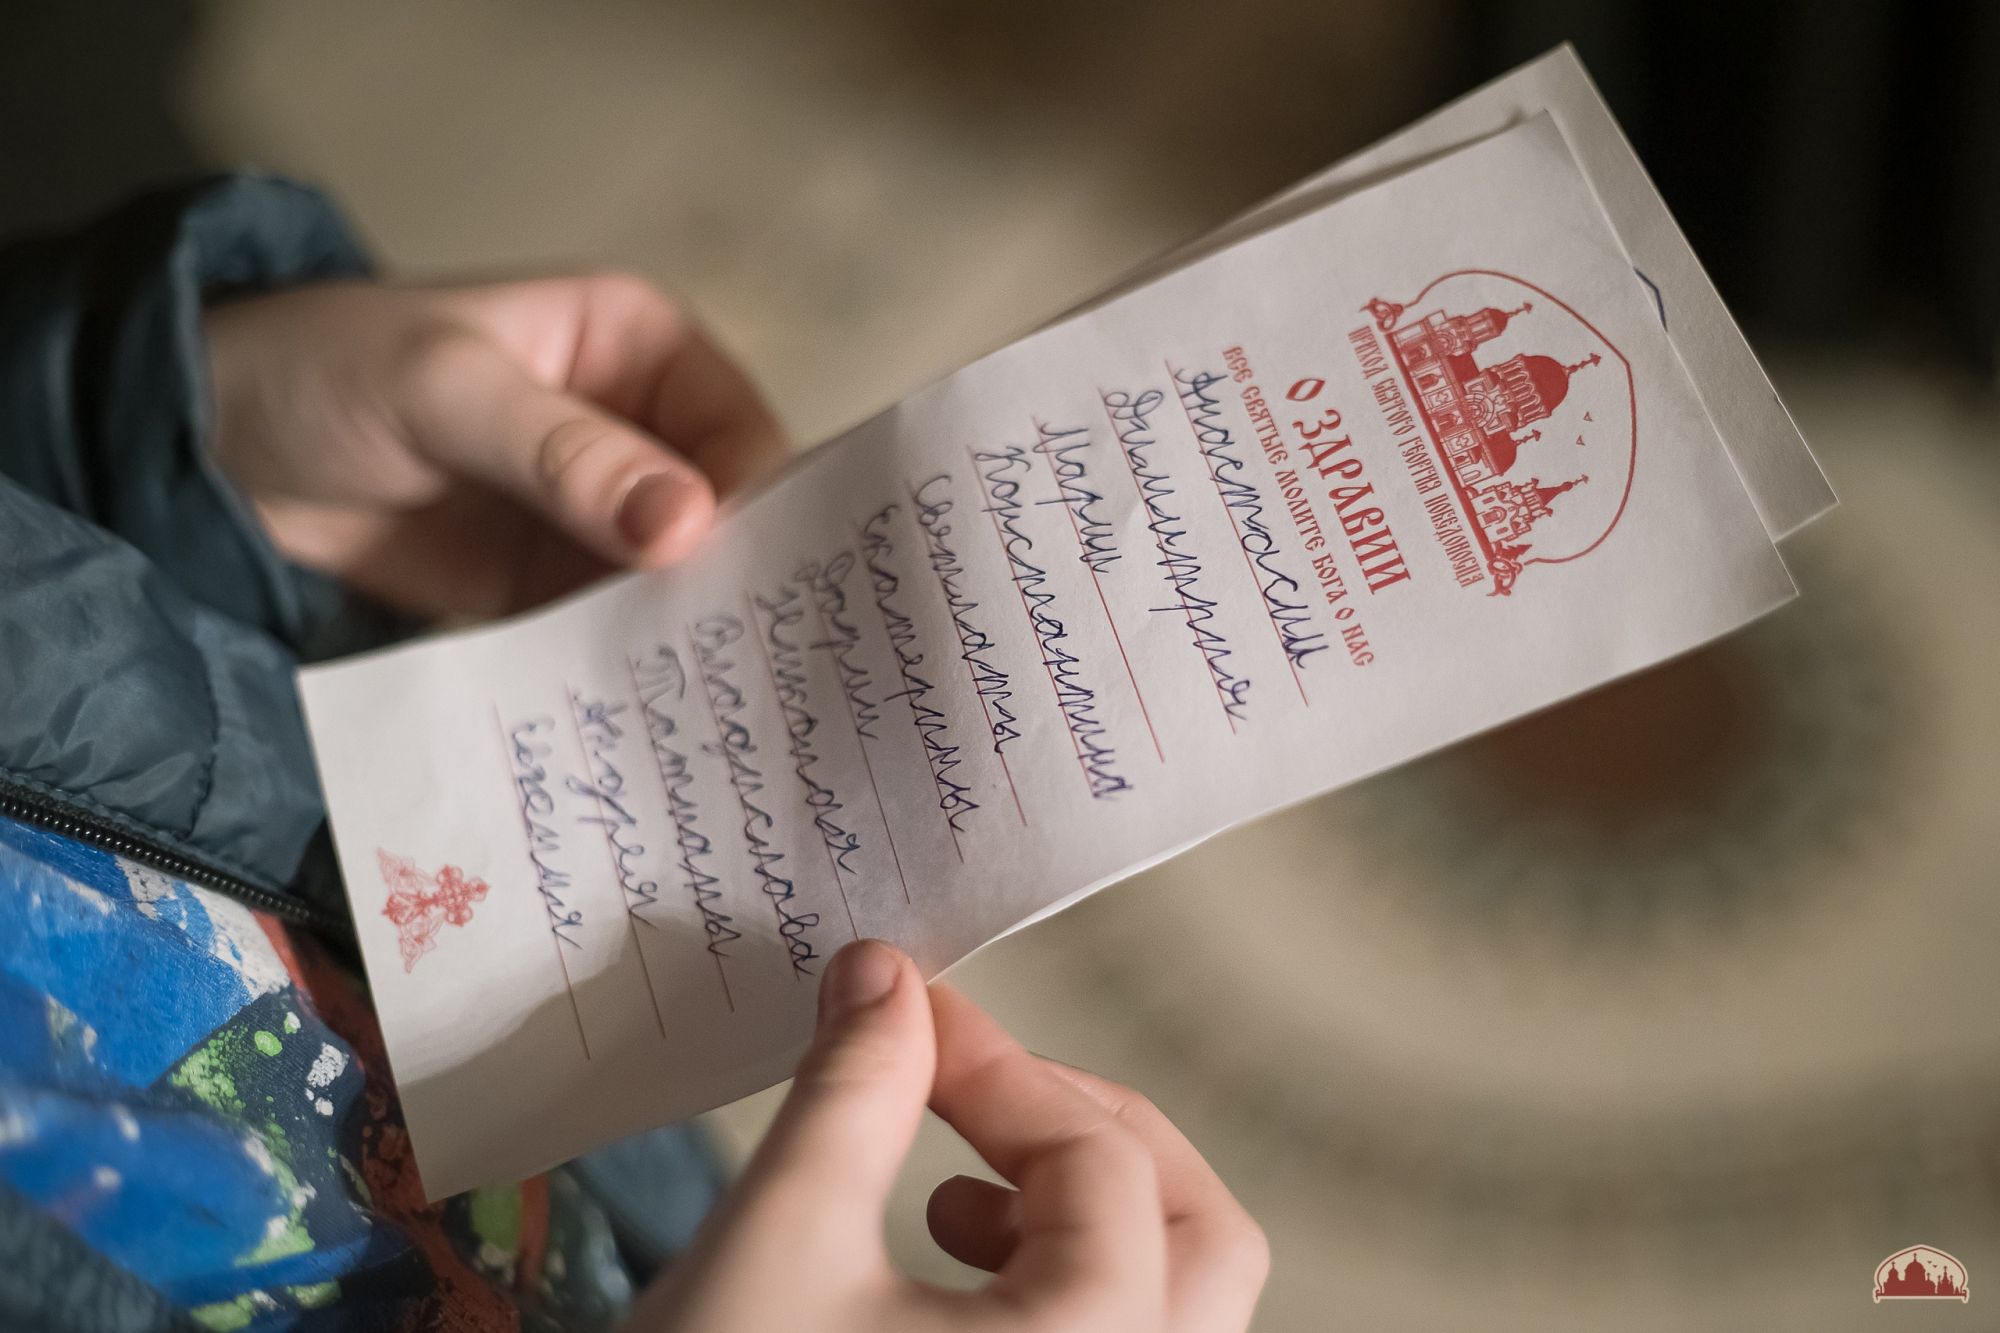 ПРИХОД СВЯТОГО ГЕОРГИЯ ПОБЕДОНОСЦА
О ЗДРАВИИ
ВСЕ СВЯТЫЕ МОЛИТЕ БОГА О НАС
Анастасии
Димитрия
Марии
Константина
Светланы
Екатерины
Дарии
Николая
Владислава
Татианы
Андрея
Евгения